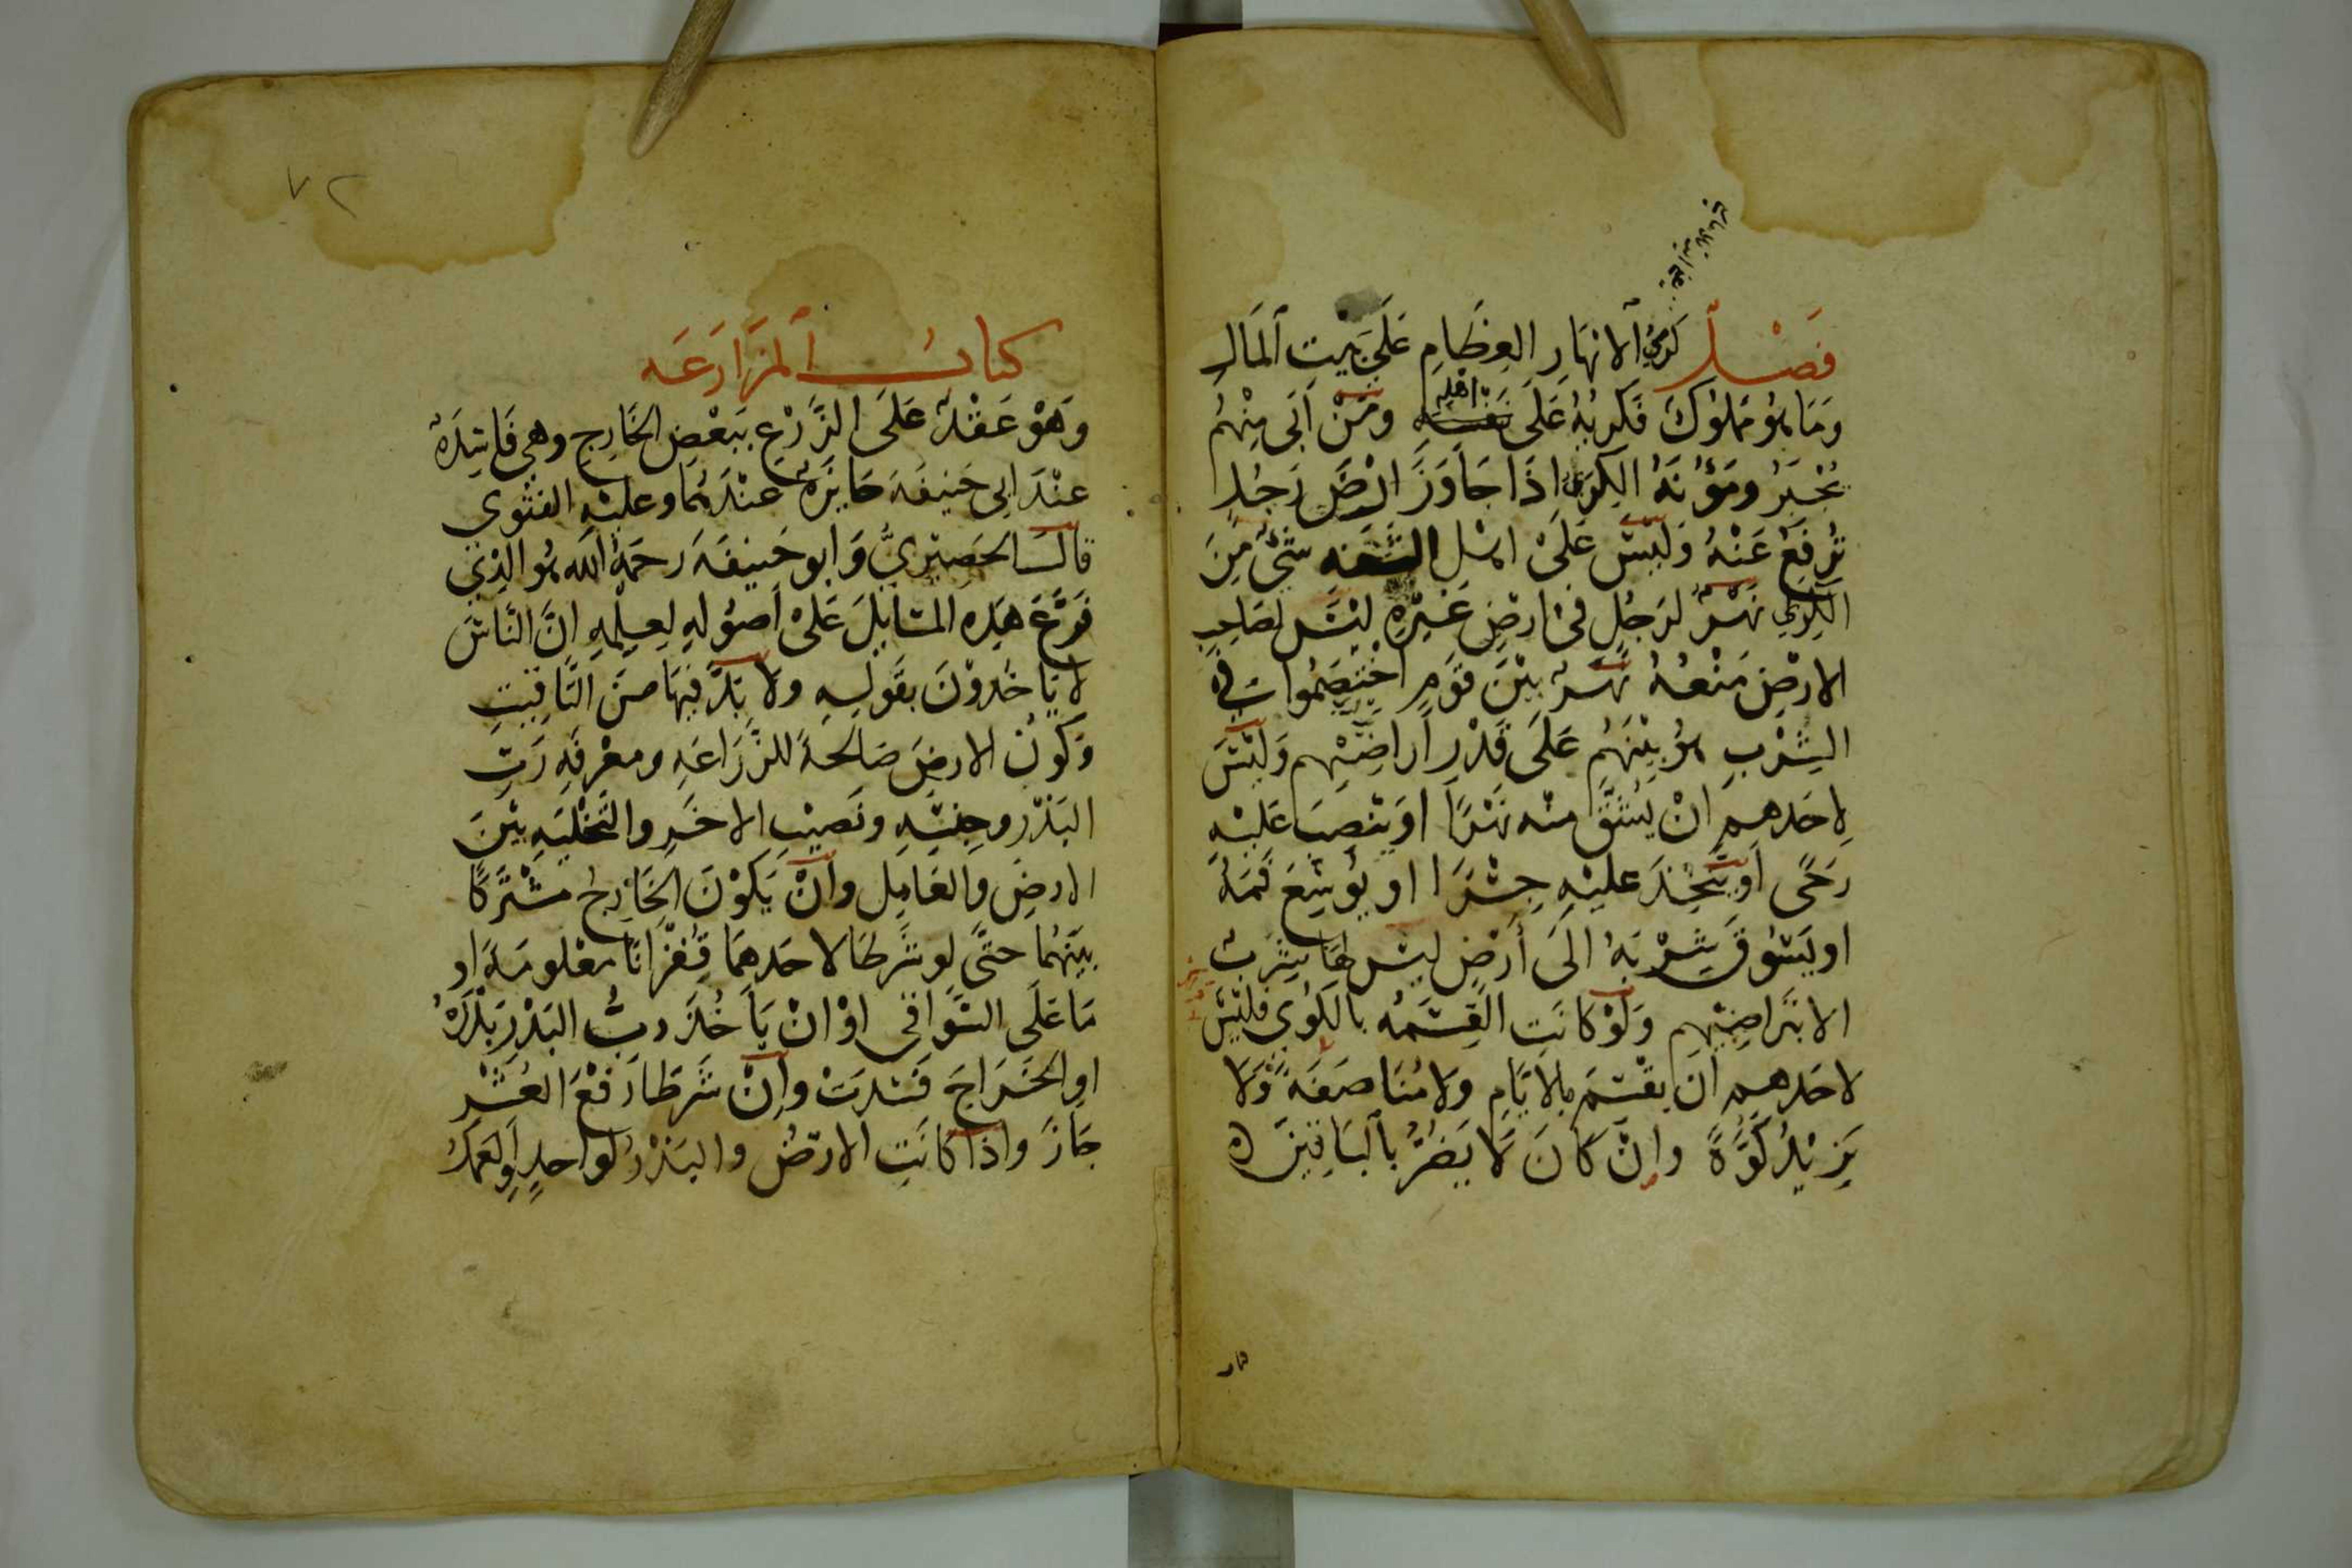 فَصْل كَرْيُ الانهَارِ العِظَامِ عَلَى بَيت المَال
وَمَا هُو مَملُوكٌ فَكريُهُ عَلَى اهْلِه ومَنْ اَبَى مِنْهُم
يُجْبَرُ ومَؤُنَةُ الكِرَى اِذَا جَاوَزَ ارْضَ رَجُلٍ
تُرفَعُ عَنْهُ وَلَيْسَ عَلَى اهْل الشَّفَهِ شَئٌ مِنَ
الكِري نَهْرٌ لرَجُلٍ فى ارضِ غَيْرِهِ ليْسَ لصَاحِبِ
الارْضِ مَنْعُهُ نَهْرٌ بيْنَ قَومٍ اخْتَصَمُوا فى
الشِرْبِ هُوَ بيْنَهُم عَلَى قَدْرِ اَراضِيْهِم وَلَيْسَ
لِاحَدهم انْ يَشُقَّ منْه نَهْرًا او يَنْصِبَ عَليْهِ
رَحًى اَو يتَّخِذَ عليْهِ جِسْرًا او يُوسِّعَ فَمَهُ
او يَسُوقَ شِرْبَهُ الَى أرضٍ ليْسَ لهَا شِرْبٌ
الا بتَراضِيْهِم وَلَوْ كَانَتِ القِسْمَهُ بالكُوى فلَيْسَ
لاحَدهم ان يقْسِمَ بالايَّامِ وَلا مُنَاصَفَةً وَلا
يَزيْدُ كُوَّةً وإنْ كَانَ لا يَضُرُّ بالبَاقِينَ
٧٢
كتابُ المزَارَعَه
وَهْوَ عَقْدٌ عَلَى الزَّرْعِ ببَعْضِ الخَارِجِ وهِى فَاسِدَةٌ
عنْدَ ابى حَنيفَةَ جَايزَةٌ عنْدَهُمَا وعليْهِ الفتْوى
قالَ الحَصيْرِيُّ وَابو حَنيفَةَ رحمَهُ الله هُو الذى
فَرَّعَ هَذِه المسَايلَ عَلىْ اُصُولهِ لعِلْمِهِ انَّ النَّاسَ
لا يَاخُذوْنَ بقَولِهِ ولا بُدَّ فيهَا منَ التَّاقِيتِ
وَكَونُ الارضِ صَالحةً للزِّرَاعَهِ ومعْرفَهِ رَبِّ
البَذْر وجِنْسِهِ ونَصيْبِ الاخَرِ والتَّخْليَهِ بيْنَ
الارضِ وَالعَامِل وأنْ يَكوْنَ الخَارِجُ مشْتَركًا
بينَهُما حتَّى لو شَرطَا لاحَدهمَا قُفْزانًا معْلومَةً او
مَا عَلَى السَّوَاقى اوْ انْ يَاخُذَ ربُّ البَذْرِ بَذْرَهُ
اوِ الخَراجَ فَسَدَتْ وإنْ شَرطَا رَفْعَ العُشْرِ
جَازَ واذَا كَانَتِ الارْضُ والبَذْرُ لوَاحدٍ اوِ العَمَلُ